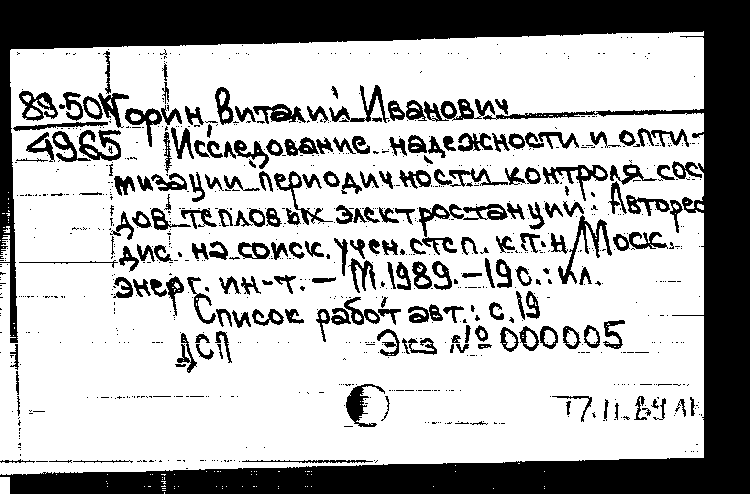 89-50К Горин Виталий Иванович
4965 Исследование надежности и опти-
мизации периодичности контроля сосу
дов тепловых электростанций: Автореф
дис. на соиск. учен. степ. к.т.н/Моск.
энерг. ин-т. – М. 1989. – 19 с.: ил.
Список работ авт.: с. 19
ДСП Экз № 000005
17.11.89